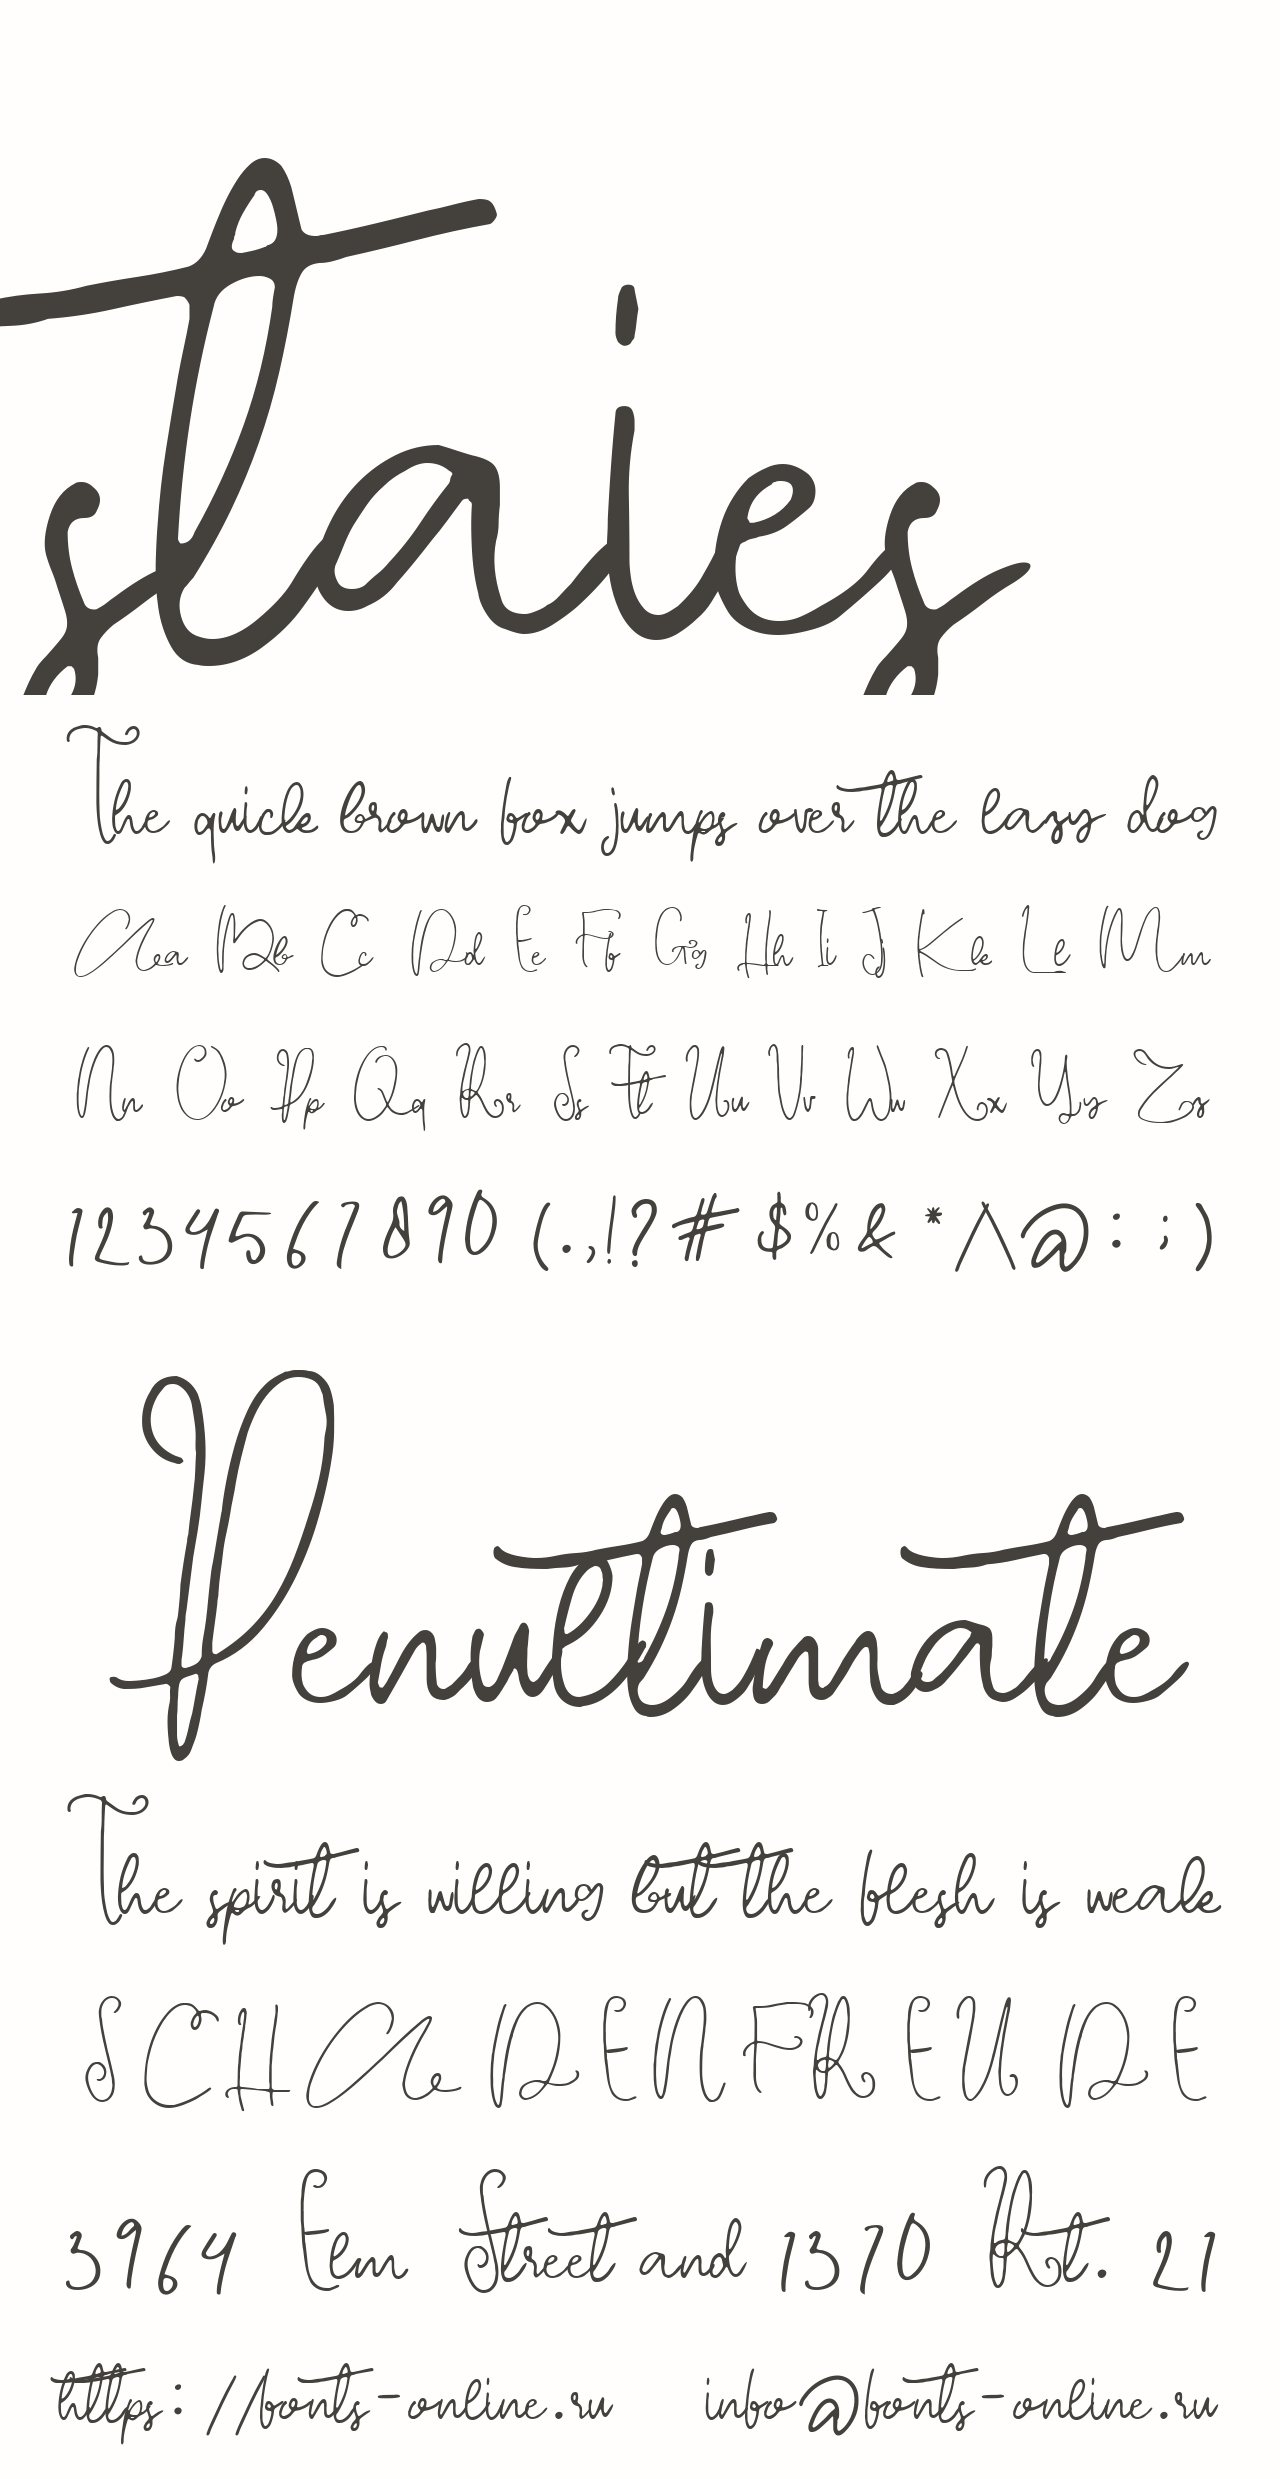 staies
The quick brown fox jumps over the lazy dog
Aa Bb Cc Dd Ee Ff Gg Hh Ii Jj Kk Ll Mm
Nn Oo Pp Qq Rr Ss Tt Uu Vv Ww Xx Yy Zz
1234567890 (.,!? # $ % & * ^ @ : ; )
Penultimate
The spirit is willing but the flesh is weak
SCHADENFREUDE
3964 Elm Street and 1370 Rt. 21
https://fonts-online.ru info@fonts-online.ru